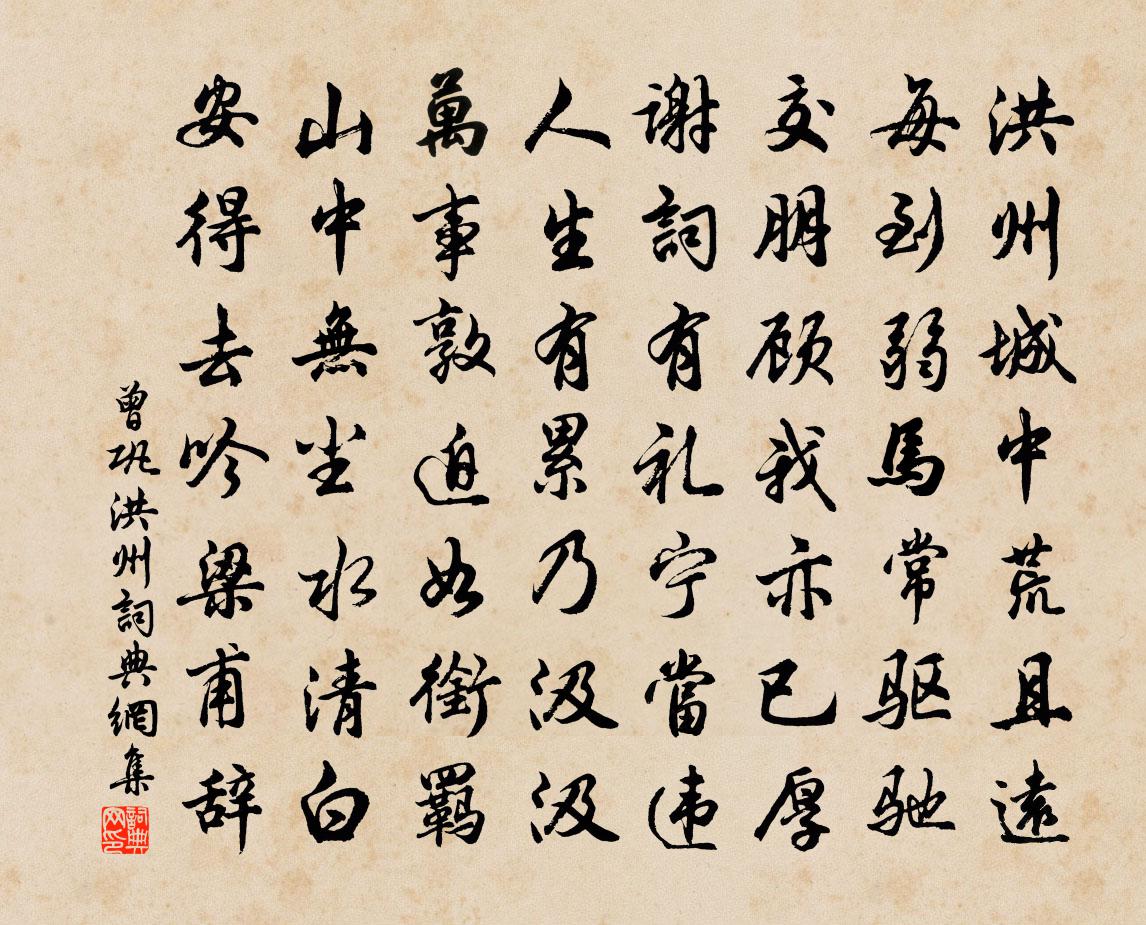 洪州城中荒且遠
每到弱馬常驱驰
交朋顾我亦已厚
谢詞有礼宁當违
人生有累乃汲汲
萬事敦迫如銜羈
山中無尘水清白
安得去吟梁甫辞
曾巩洪州詞典網集
詞典网印